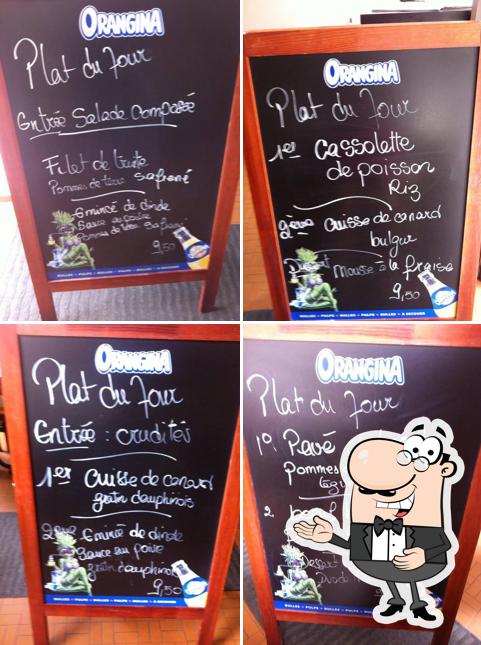 ORANGINA
Plat du Jour
Entrée Salade Composée
Filet de truite
Pommes de terre safrané
Emincé de dinde
Sauce au poivre
Pommes de terre Safrané
9,50
BULLES • PULPE • BULLES • PULPE • BULLES • A SECOUER
ORANGINA
Plat du Jour
1er Cassolette
de poisson
Riz
2ème Cuisse de canard
bulgur
Dessert Mousse à la fraise
9,50
BULLES • PULPE • BULLES • PULPE • BULLES • A SECOUER
ORANGINA
Plat du Jour
Entrée : crudités
1er Cuisse de canard
gratin dauphinois
2ème Emincé de dinde
Sauce au poivre
gratin dauphinois
9,50
BULLES • PULPE • BULLES • PULPE • BULLES • A SECOUER
ORANGINA
Plat du Jour
1° Pavé
Pommes
2
Dessert
BULLES • PULPE • BULLES • PULPE • BULLES